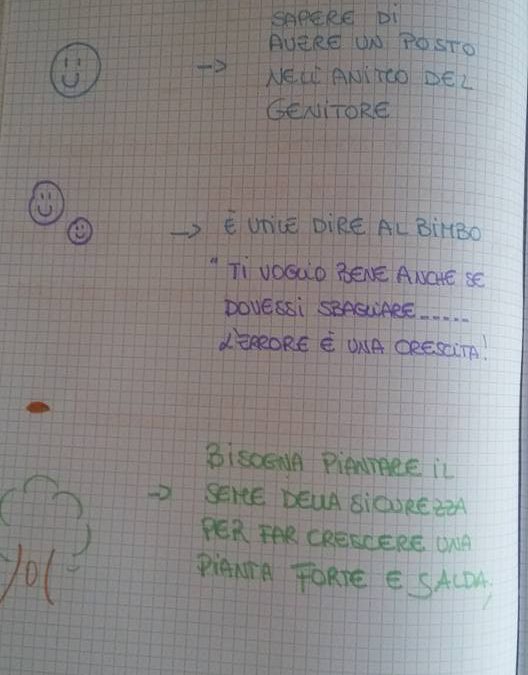 SAPERE DI
AVERE UN POSTO
NELL'ANITCO DEL
GENITORE
→ È UTILE DIRE AL BIMBO
"TI VOGLIO BENE ANCHE SE
DOVESSI SBAGLIARE......
L'ERRORE È UNA CRESCITA!
BISOGNA PIANTARE IL
→ SEME DELLA SICUREZZA
PER FAR CRESCERE UNA
PIANTA FORTE E SALDA,